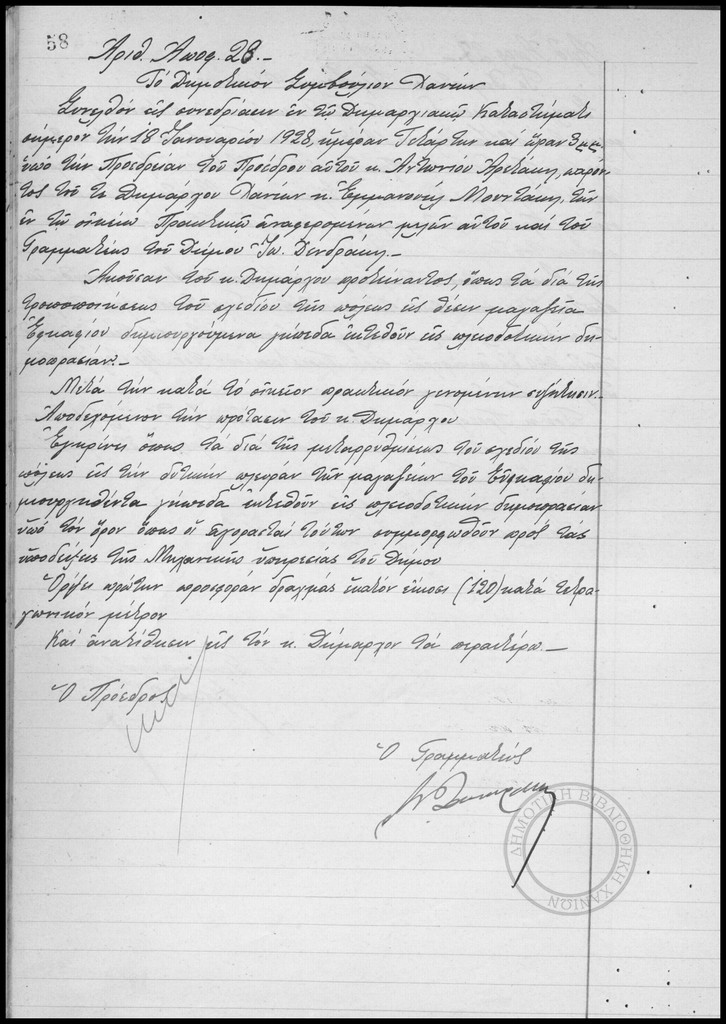 58
Αριθ. Αποφ. 28.-
Το Δημοτικόν Συμβούλιον Χανίων
Συνελθόν εις συνεδρίασιν εν τω Δημαρχιακώ Καταστήματι
σήμερον την 18 Ιανουαρίου 1928, ημέραν Τετάρτην και ώραν 3 μ.μ.
υπό την Προεδρείαν του Προέδρου αυτού κ. Αντωνίου Αρετάκη, παρόν-
τος του τε Δημάρχου Χανίων κ. Εμμανουήλ Μουντάκη, των
εν τω οικείω Πρακτικώ αναφερομένων μελών αυτού και του
Γραμματέως του Δήμου Ιω. Δενδράκη.-
Ακούσαν του κ. Δημάρχου προτείναντος, όπως τα διά της
τροποποιήσεως του σχεδίου της πόλεως εις θέσιν μαγαζεία
Εφκαφίου δημιουργούμενα γήπεδα εκτεθούν εις πλειοδοτικήν δη-
μοπρασίαν.-
Μετά την κατά το οικείον πρακτικόν γενομένην συζήτησιν
Αποδεχόμενον την πρότασιν του κ. Δημάρχου
Εγκρίνει όπως τα διά της μεταρρυθμίσεως του σχεδίου της
πόλεως εις την δυτικήν πλευράν των μαγαζείων του Εφκαφίου δη-
μιουργηθέντα γήπεδα εκτεθούν εις πλειοδοτικήν δημοπρασίαν
υπό τον όρον όπως οι αγορασταί τούτων συμμορφωθούν προς τας
υποδείξεις της Μηχανικής υπηρεσίας του Δήμου
Ορίζει πρώτην προσφοράν δραχμάς εκατόν είκοσι (120) κατά τετρα-
γωνικόν μέτρον
Και ανατίθησιν εις τον κ. Δήμαρχον τα περαιτέρω.-
Ο Πρόεδρος
Ο Γραμματεύς
ΔΗΜΟΤΙΚΗ ΒΙΒΛΙΟΘΗΚΗ ΧΑΝΙΩΝ